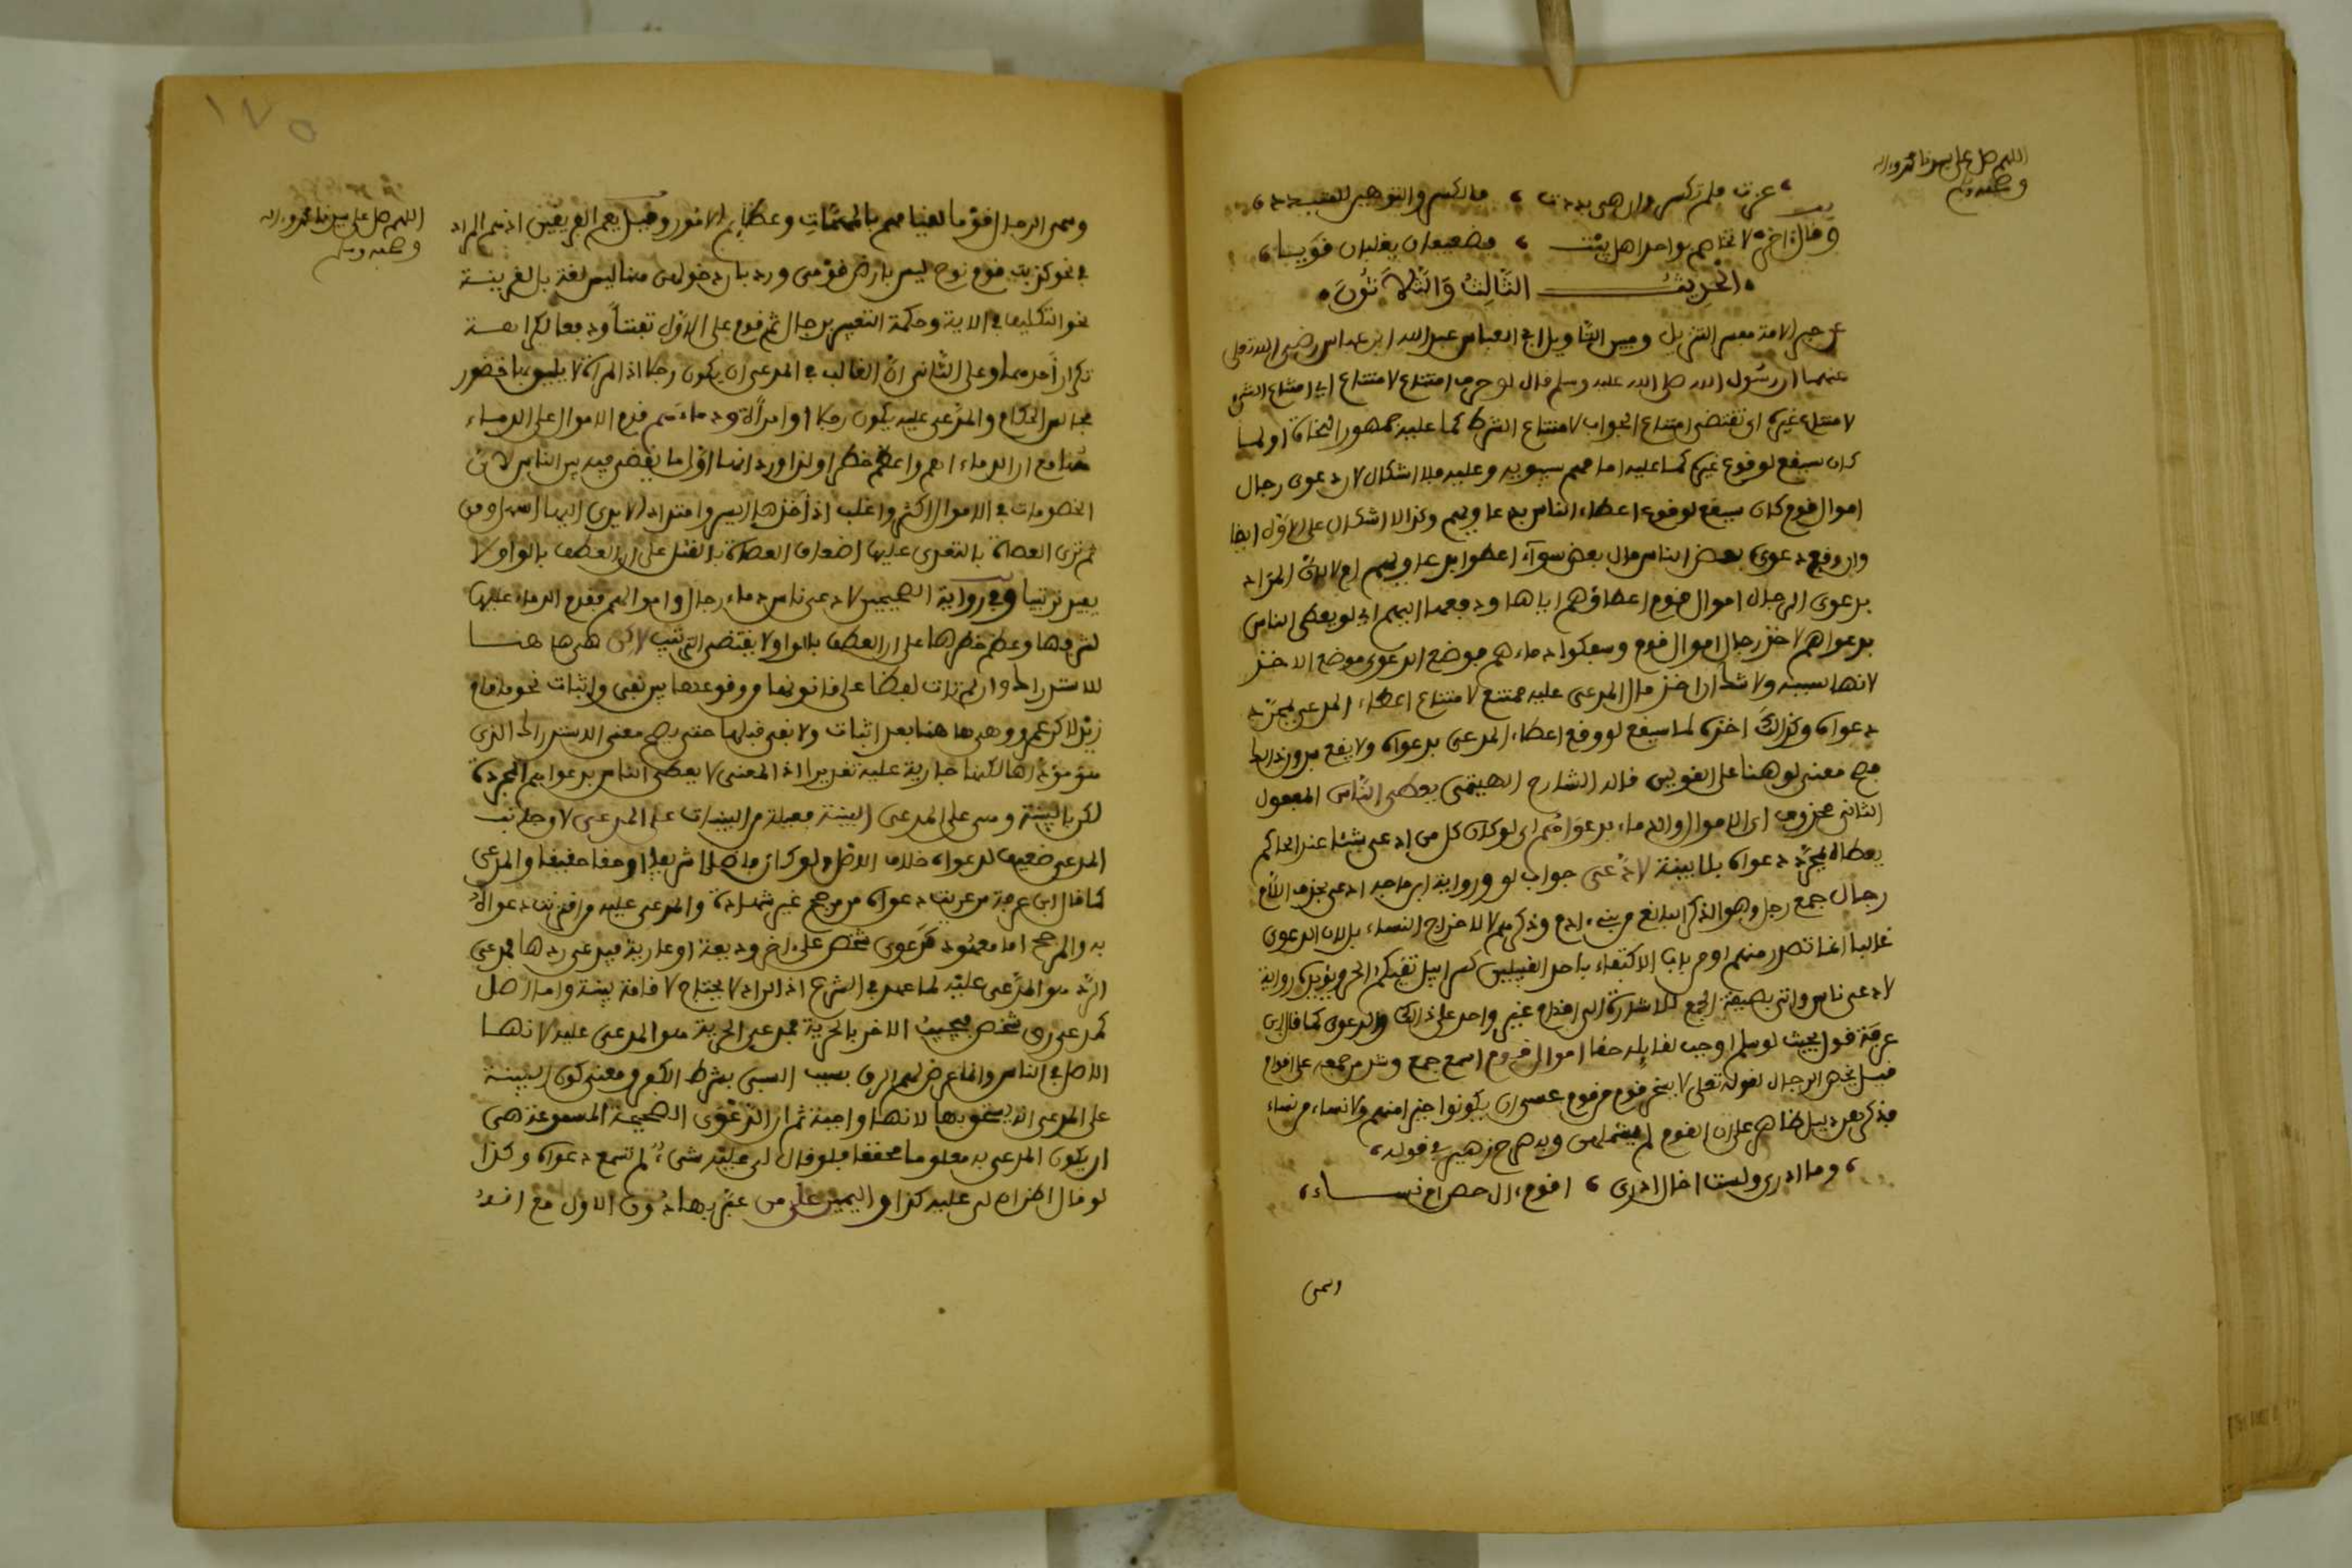 اللهم صل على سيدنا محمد وءاله
وصحبه وسلم
عزت فلم تكسر وان هي بددت ، فالكسر والتوهين للمتبدد
وقال اخر لا تخاصم بواحد اهل بيت ، فضعيفان يغلبان قويا
الحديث الثالث والثلاثون
عن حبر الامة مفسر التنزيل ومبين التاويل ابي العباس عبد الله ابن عباس رضي الله تعلى
عنهما ان رسول الله صلى الله عليه وسلم قال لو حرف امتناع لامتناع اي امتناع الشيء
لامتناع غيره اي تقتضي امتناع الجواب لامتناع الشرط كما عليه جمهور النحاة او لما
كان سيقع لوقوع غيره كما عليه امامهم سيبويه وعليه فلا اشكال لان دعوى رجال
اموال قوم كان سيقع لوقوع اعطاء الناس بدعاويهم وكذا لا اشكال على الاول ايضا
وان وقع دعوى بعض الناس مال بعض سواء اعطوا بدعاويهم ام لا لان المراد
بدعوى الرجال اموال قوم اعطاؤهم اياها ودفعها اليهم اي لو يعطى الناس
بدعواهم لاخذ رجال اموال قوم وسفكوا دماءهم فوضع الدعوى موضع الاخذ
لانها سببه ولا شك ان اخذ مال المدعى عليه ممتنع لامتناع اعطاء المدعي بمجرد
دعواه وكذلك اخذه لما سيقع لو وقع اعطاء المدعي بدعواه ولا يقع بدون ذلك
فصح معنى لو هنا على القولين قاله الشارح الهيتمي يعطى الناس المفعول
الثاني محذوف اي الاموال والدماء بدعواهم اي لو كان كل من ادعى شيئا عند الحاكم
يعطاه بمجرد دعواه بلا بينة لادعى جواب لو ورواية ابن ماجه ادعى بحذف اللام
رجال جمع رجل وهو الذكر البالغ من بني ءادم وذكرهم لا لاخراج النساء بل لان الدعوى
غالبا انما تصدر منهم او من باب الاكتفاء باحد القبيلين كسرابيل تقيكم الحر ويؤيده رواية
لادعى ناس واتى بصيغة الجمع للاشارة الى اقدام غير واحد على ذلك والدعوى كما قال ابن
عرفة قول بحيث لو سلم اوجب لقايله حقا اموال قوم اسم جمع وشذ جمعه على اقوام
قيل يخص الرجال لقوله تعلى لا يسخر قوم من قوم عسى ان يكونوا خيرا منهم ولا نساء من نساء
فذكرهن دليل ظاهر على ان القوم لم يشملهن وبه صرح زهير في قوله
، وما ادري ولست اخال ادري ، اقوم ءال حصن ام نساء ،
وسمي
اللهم صل على سيدنا محمد وءاله
وصحبه وسلم
وسمي الرجال قوما لقيامهم بالمهمات وعظايم الامور وقيل يعم الفريقين اذ هم المراد
في نحو كذبت قوم نوح ليس بارض قومي ورد بان دخولهن هنا ليس لغة بل لقرينة
نحو التكليف في الاية وحكمة التعبير برجال ثم قوم على الاول تفننا ودفعا لكراهة
تكرار احدهما وعلى الثاني ان الغالب في المدعي ان يكون رجلا اذ المراة لا يليق بها حضور
مجالس الحكام والمدعى عليه يكون رجلا او امراة ودماءهم قدم الاموال على الدماء
هنا مع ان الدماء اهم واعظم خطرا ولذا ورد انها اول ما يقضى فيه بين الناس لان
الخصومات في الاموال اكثر واغلب اذ اخذها ايسر وامتداد الايدي اليها اسهل ومن
ثم ترى العصاة بالتعدي عليها اضعاف العصاة بالقتل على ان العطف بالواو لا
يفيد ترتيبا وفي رواية الصحيحين لادعى ناس دماء رجال واموالهم فقدم الدماء عليها
لشرفها وعظم خطرها على ان العطف بالواو لا يقتضي الترتيب لكن هي ها هنا
للاستدراك وان لم تات لفظا على قانونها من وقوعها بين نفي واثبات نحو ما قام
زيد لكن عمرو وهي ها هنا بعد اثبات ولا نفي قبلها حتى يصح معنى الاستدراك الذي
هو مؤداها لكنها جارية عليه تقديرا اذ المعنى لا يعطى الناس بدعواهم المجردة
لكن بالبينة وهي على المدعي البينة فعيلة من البينات على المدعي لان جانب
المدعي ضعيف لدعواه خلاف الاصل ولو كان فاضلا شريفا او حقا حقيقا والمدعي
كما قال ابن عرفة من عريت دعواه من مرجح غير شهادة والمدعى عليه من اقترنت دعواه
به والمرجح اما معهود كدعوى شخص على ءاخر وديعة او عارية فيدعي ردها فمدعي
الرد هو المدعى عليه لما عهد في الشرع اذ الراد لا يحتاج لاقامة بينة واما اصل
كمدعي رق شخص فيجيب الاخر بالحرية فمدعي الحرية هو المدعى عليه لانها
الاصل في الناس وانما عرض لهم الرق بسبب السبي بشرط الكفر ومعنى كون البينة
على المدعي انه يستحق بها لا انها واجبة ثم ان الدعوى الصحيحة المسموعة هي
ان يكون المدعى به معلوما محققا فلو قال لي عليه شيء لم تسمع دعواه وكذا
لو قال اظن ان لي عليه كذا واليمين على من عبر بها دون الاول مع انه